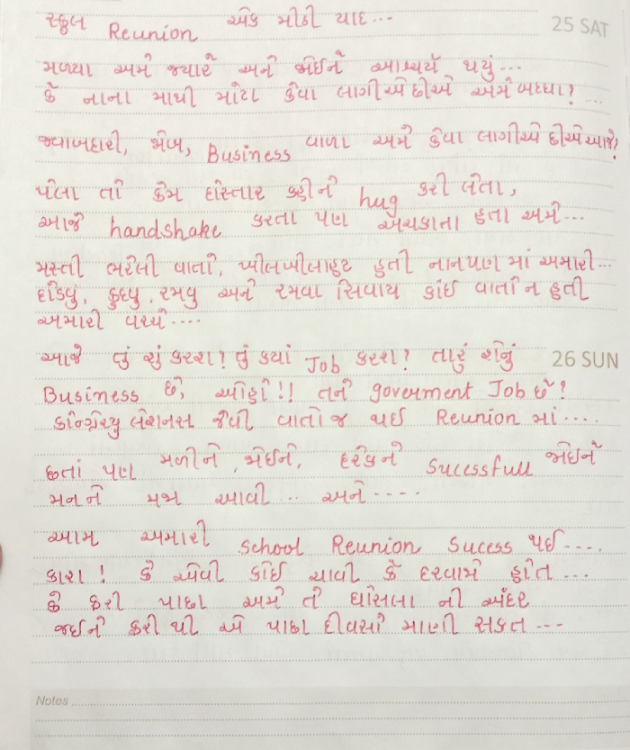 સ્કુલ Reunion એક મીઠી યાદ...
25 SAT
મળ્યા અમે જ્યારે અને જોઈને આશ્ચર્ય થયું...
કે નાના માથી મોટા કેવા લાગીએ છીએ અમે બધ્ધા? ...
જવાબદારી, જોબ, Business વાળા અમે કેવા લાગીએ છીએ આજે?
પેલા તો કેમ દોસ્તાર કહીને hug કરી લેતા,
આજે handshake કરતા પણ અચકાતા હતા અમે...
મસ્તી ભરેલી વાતો, ખીલખીલાહટ હતી નાનપણ માં અમારી...
દોડવુ, કુદવુ, રમવુ અને રમવા સિવાય કાંઈ વાર્તા ન હતી
અમારી વચ્ચે....
આજે તું શું કરશ? તું કયાં Job કરશ? તારું શેનું
26 SUN
Business છે, ઓહો!! તને goverment Job છે?
કોન્ગ્રેચ્યુ લેશનસ જેવી વાતો જ થઈ Reunion માં....
છતાં પણ મળીને, જોઈને, દરેકને Sucessfull જોઈને
મનને મજા આવી .. અને ----
આમ અમારી School Reunion Sucess થઈ....
કાશ! કે એવી કોઈ ચાવી કે દરવાજો હોત ...
કે ફરી પાછા અમે તે ઘોંસલા ની અંદર
જઈને ફરી થી એ પાછા દીવસો માણી સકત ---
Notes